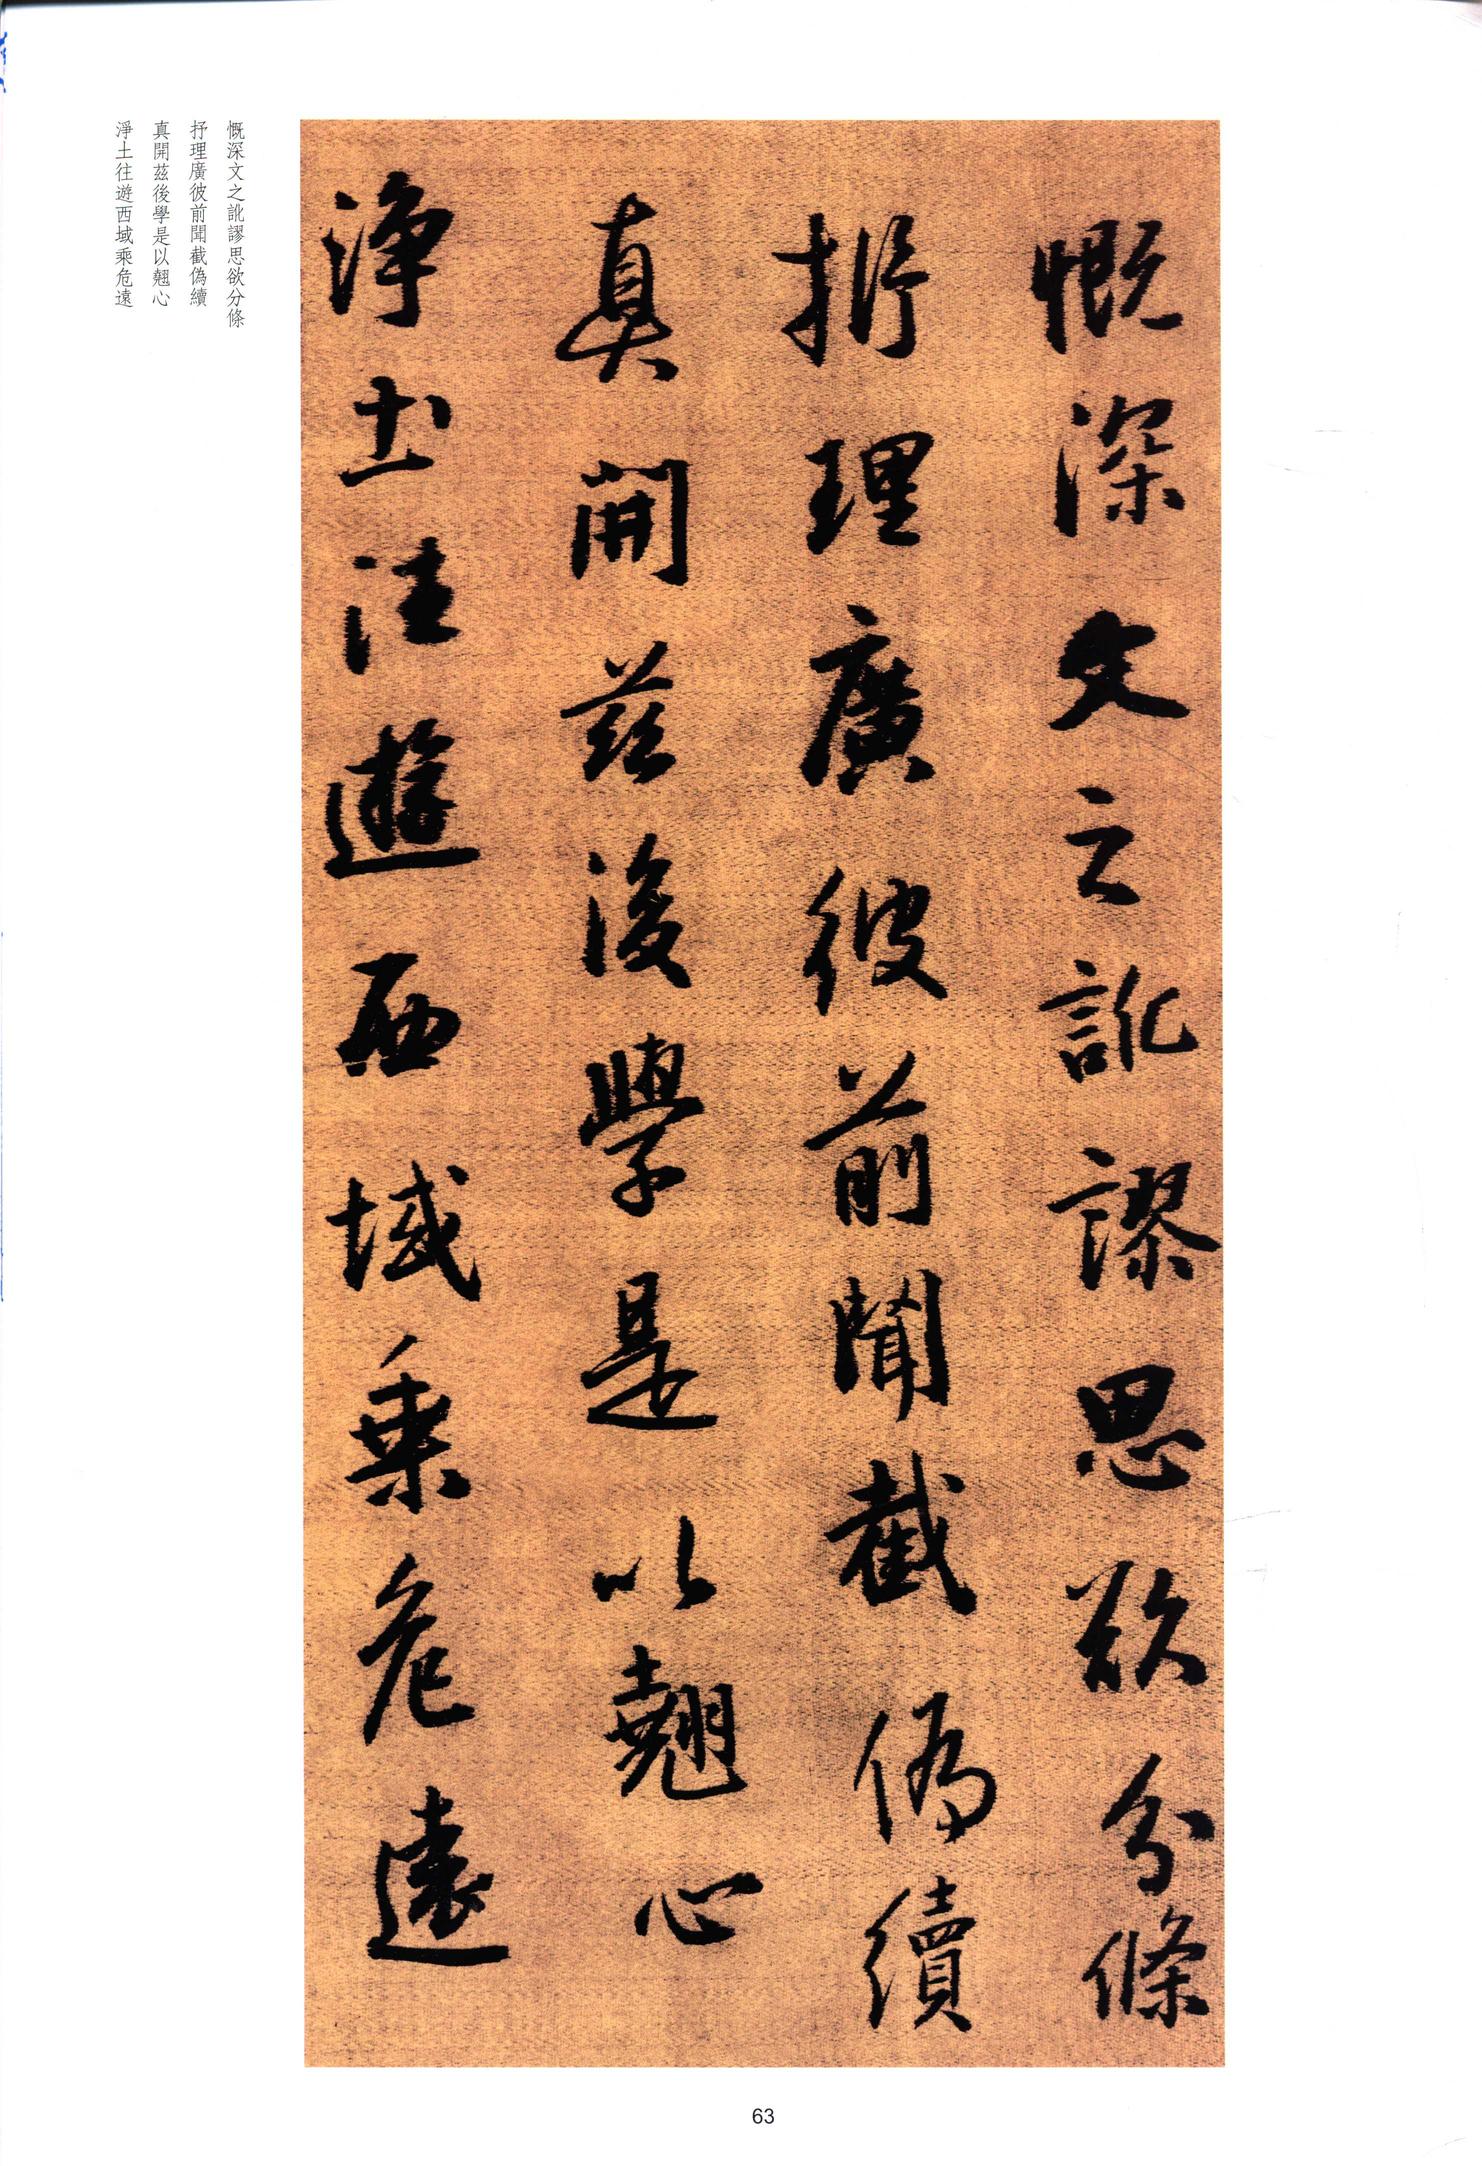 慨深文之訛謬思欲分條
抒理廣彼前聞截偽續
真開茲後學是以翹心
淨土往遊西域乘危遠
慨深文之訛謬思欲分條
抒理廣彼前聞截偽續
真開茲後學是以翹心
淨土往遊西域乘危遠
63